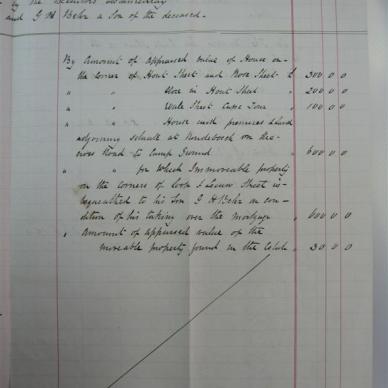 by the Executors
and G H Behr a Son of the deceased.
By Amount of appraised value of House on
the corner of Hout Street and Rose Street £ 300 0 0
" " Store in Hout Street " 200 0 0
" " Wale Street Cape Town " 100 0 0
" " House with premises & Land
adjoining situate at Rondebosch on the
cross Road to Camp Ground " 600 0 0
" " for which Immoveable property
on the corners of Loop & Leeuw Street is
bequeathed to his Son G H Behr on con-
dition of his taking over the mortgage " 600 0 0
" Amount of appraised value of the
moveable property found in the Estate " 30 0 0